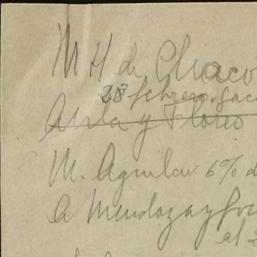 M H de Chaco
28 febrero. gac
Avila y Flores
M. Aguilar 6% d
A Mendoza y
al 2